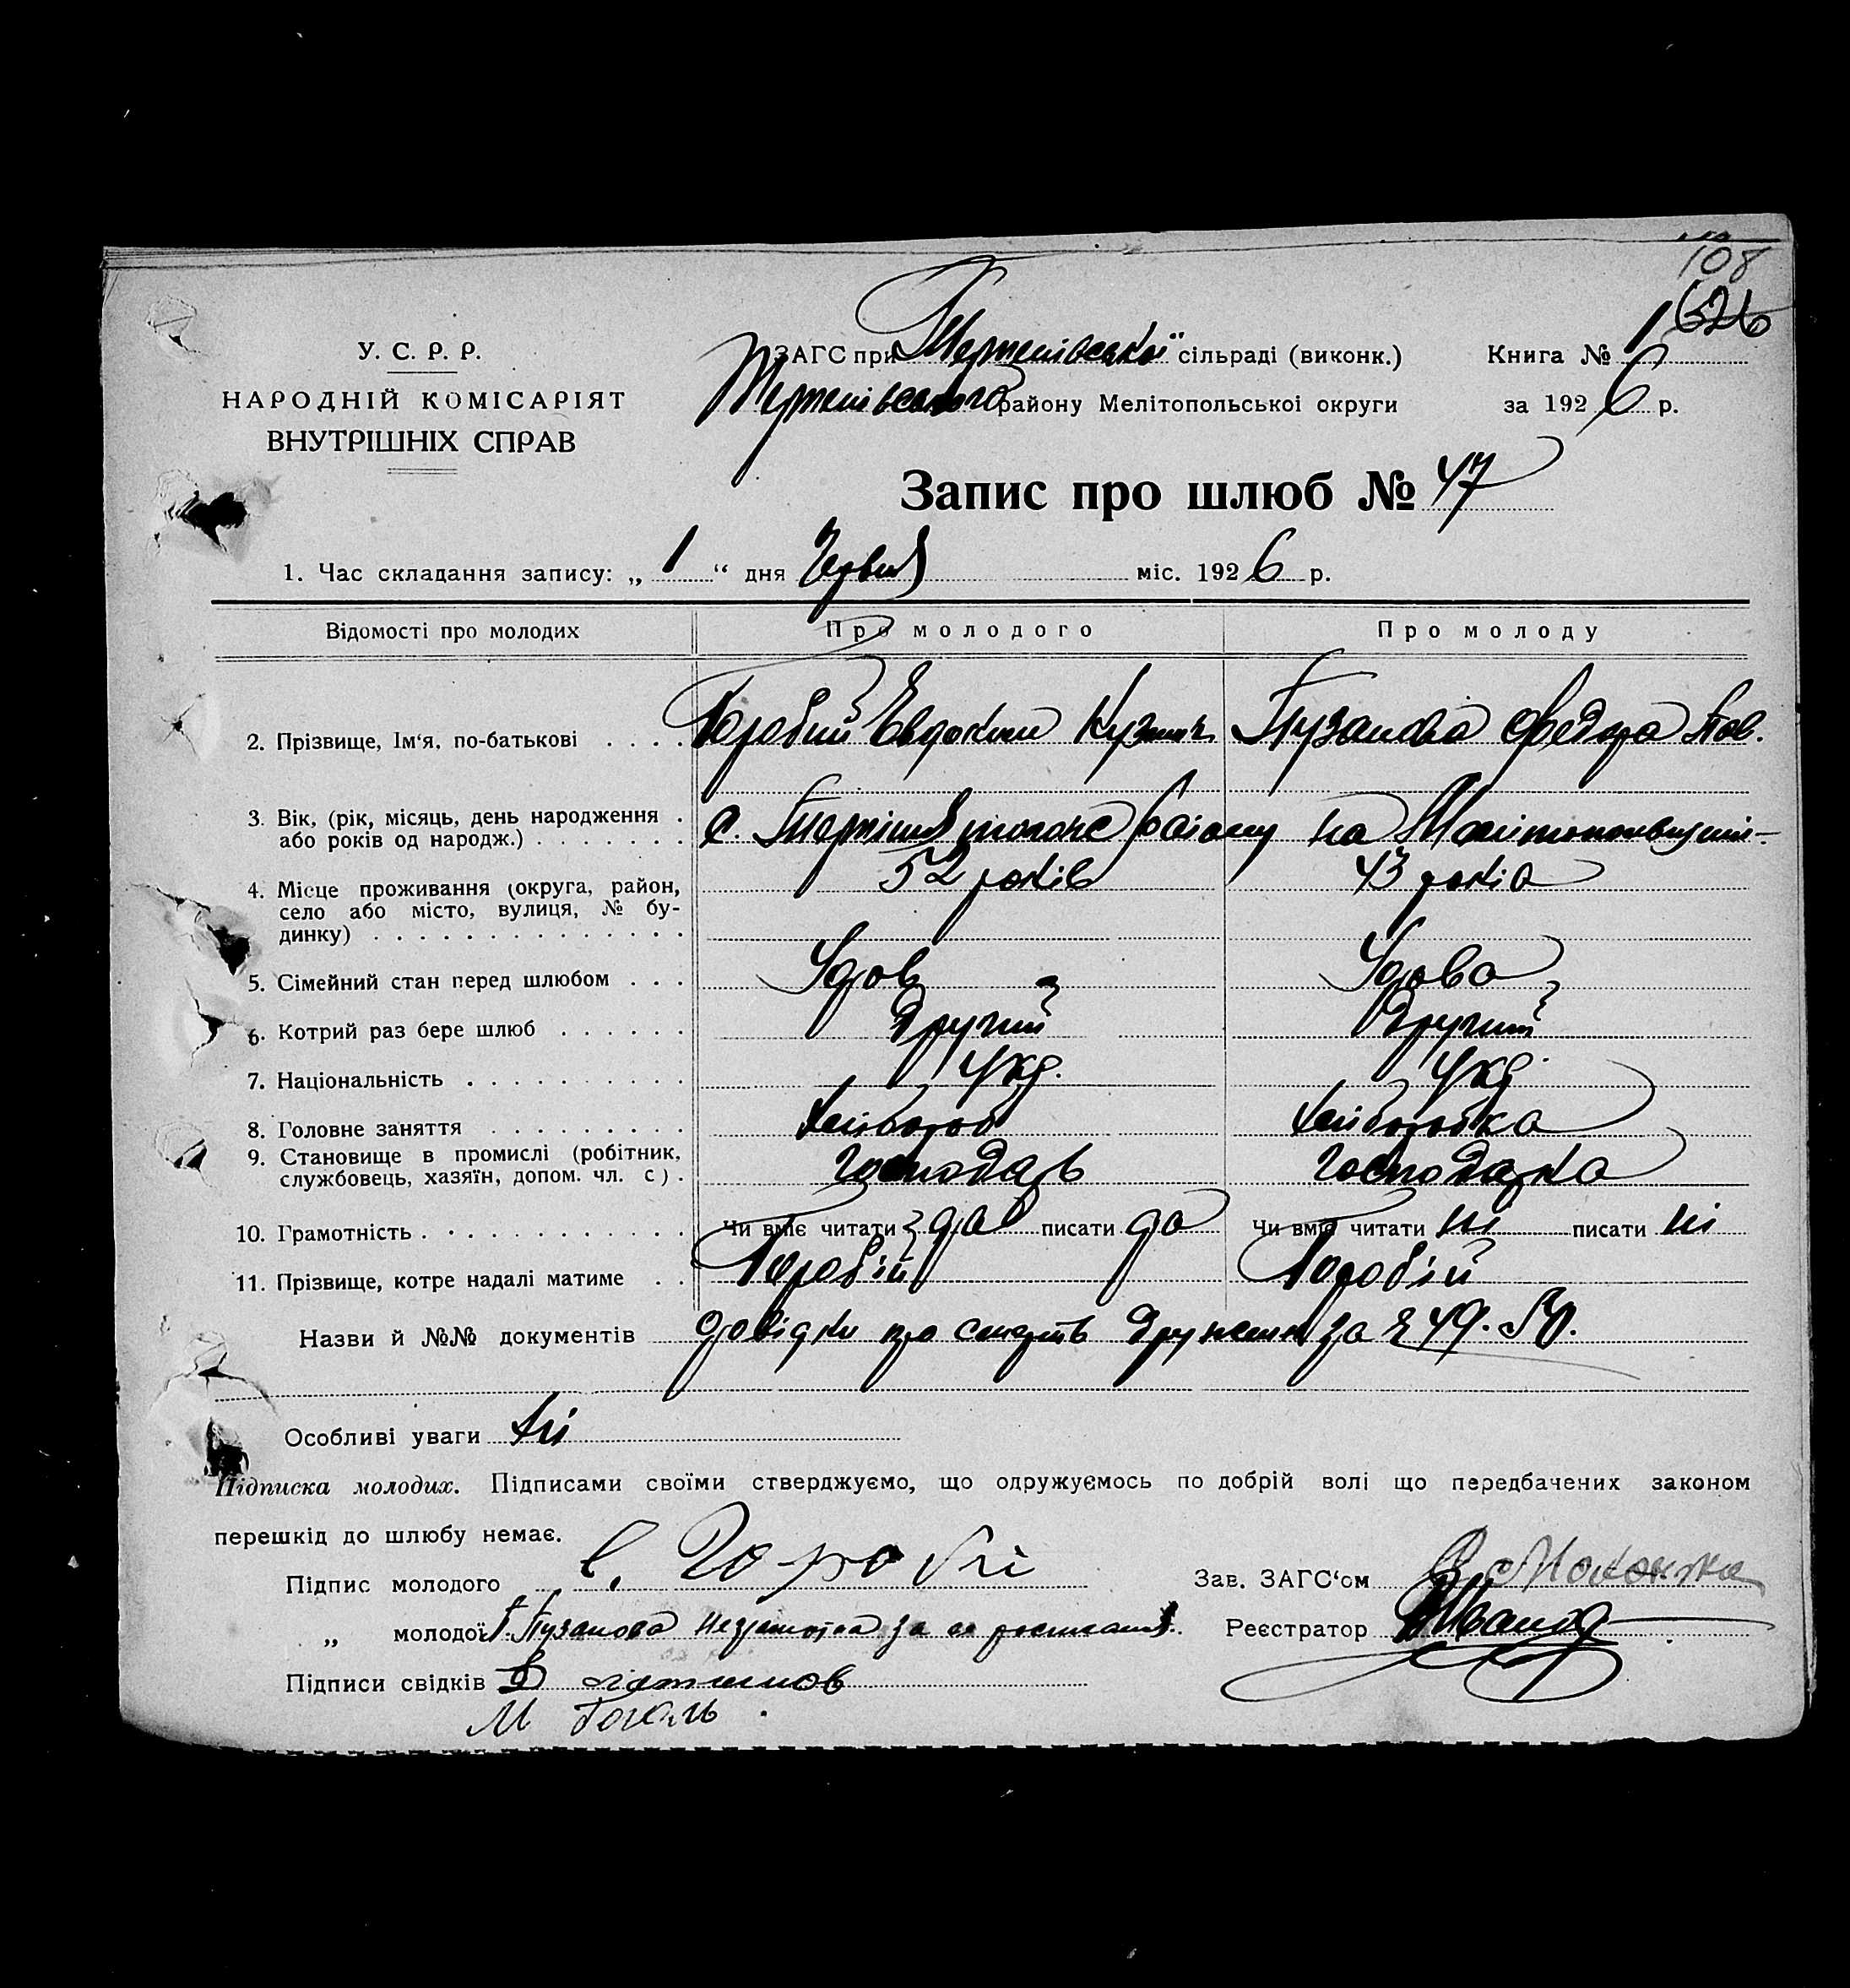 108
626
У. С. Р. Р.
НАРОДНІЙ КОМІСАРІЯТ
ВНУТРІШНІХ СПРАВ
ЗАГС при Терпенівської сільраді (виконк.)
Терпенівського району Мелітопольської округи
Книга № 1
за 1926 р.
Запис про шлюб № 47
1. Час складання запису: „ 1 “ дня Червня міс. 1926 р.
Відомості про молодих Про молодого Про молоду
2. Прізвище, Ім‘я, по-батькові . . . . Горобий Евдоким Кузмич Пузанова Федора Пав.
3. Вік, (рік, місяць, день народження .
або років од народж.) . . . . . . . с. Терпіння тогож району на Мелітопольщині
4. Місце проживання (округа, район, 52 років 43 років
село або місто, вулиця, № бу-
динку) . . . . . . . . . . . . . .
5. Сімейний стан перед шлюбом . . . Удов Удова
6. Котрий раз бере шлюб . . . . . . Другий Другий
7. Національність . . . . . . . . . . Укр. Укр.
8. Головне заняття . . . . . . . . . хлібороб хліборобка
9. Становище в промислі (робітник,
службовець, хазяїн, допом. чл. с). господарь господарка
10. Грамотність . . . . . . . . . . . Чи вміє читати да писати да Чи вміє читати ні писати ні
11. Прізвище, котре надалі матиме . . Горобій Горобій
Назви й №№ документів довідки про смерть дружини за № 49. 50.
Особливі уваги ні
Підписка молодих. Підписами своїми стверджуємо, що одружуємось по добрій волі що передбачених законом
перешкід до шлюбу немає.
Підпис молодого Е. Горобій
Зав. ЗАГС‘ом
„ молодої Пузанова Неграмотна за ее
Реєстратор Иванов
Підписи свідків
М Гоголь